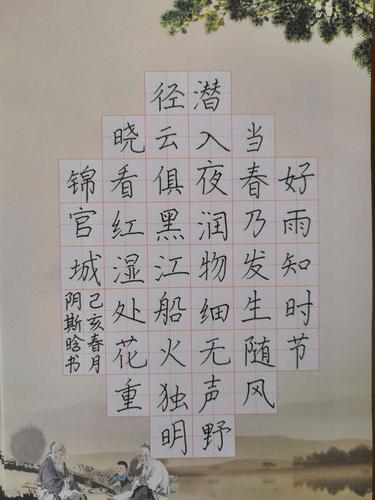 好雨知时节
当春乃发生随风
潜入夜润物细无声野
径云俱黑江船火独明
晓看红湿处花重
锦官城
己亥春月
阴斯晗书